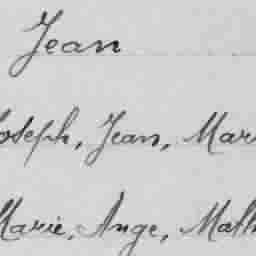 Jean
Joseph, Jean, Mari
Marie, Ange, Math